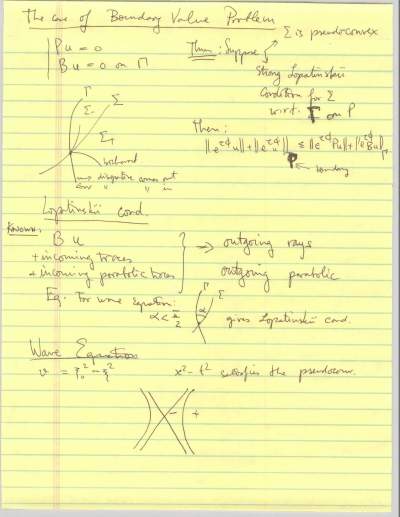 The case of Boundary Value Problem
Pu = 0
Bu = 0 on Γ
Thm: Suppose
Σ is pseudoconvex
Strong Lopatinskii
Condition for Σ
w.r.t. Γ on P
Then:
Γ
Σ
Σ+
backward
Lopatinskii cond.
Known:
Bu
+ incoming traces
+ incoming parabolic traces
→ outgoing rays
outgoing parabolic
Eg. For wave Equation:
α < π/2
Γ
Σ
α
gives Lopatinskii cond.
Wave Equation
x² - t² satisfies the pseudoconv.
- +
boundary